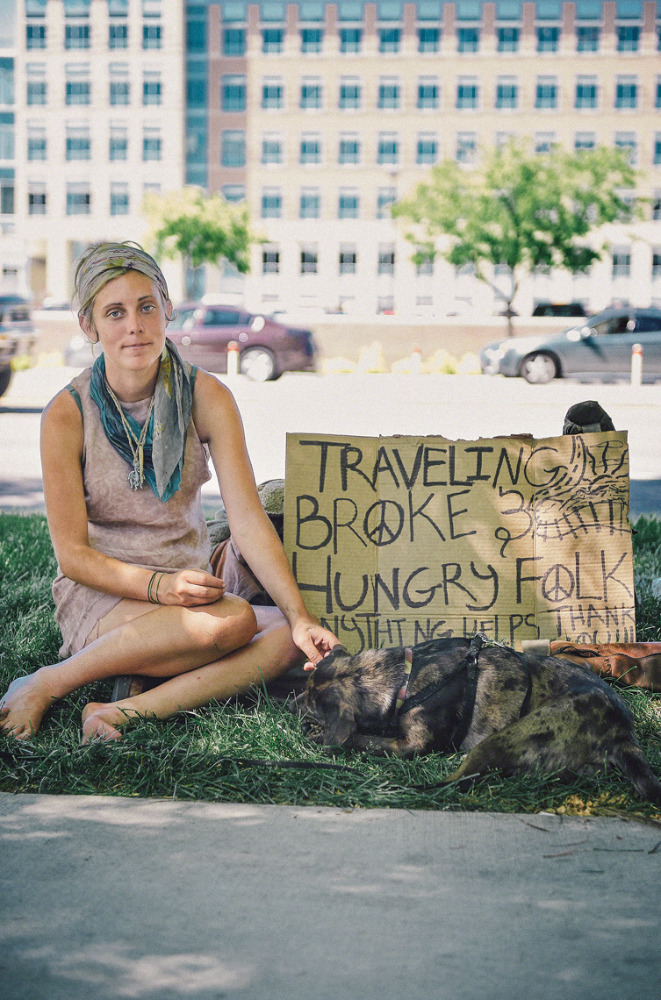 TRAVELING
BROKE, &
HUNGRY FOLK
ANYTHING HELPS THANK
YOU!!